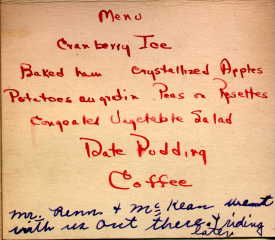 Menu
Cranberry Ice
Baked ham Crystallized Apples
Potatoes au gratin Peas in Rosettes
Congealed Vegetable Salad
Date Pudding
Coffee
Mr. Renn & McKean went
with us out there & riding
later